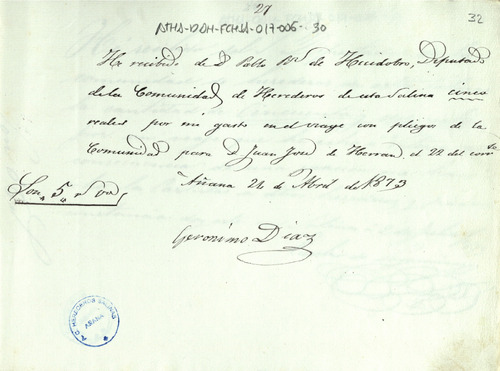 27
32
ATHA-DAH-FCHSA-017-006-30
He recibido de D. Pablo Rz de Huidobro, Diputado
de la Comunidad de Herederos de esta Salina cinco
reales por mi gasto en el viage con pliegos de la
Comunidad para D. Juan José de Herran el 22 del corrte
Añana 24 de Abril de 1873
Son 5 rs von
Geronimo Diaz
A.C. HEREDEROS SALINAS
AÑANA